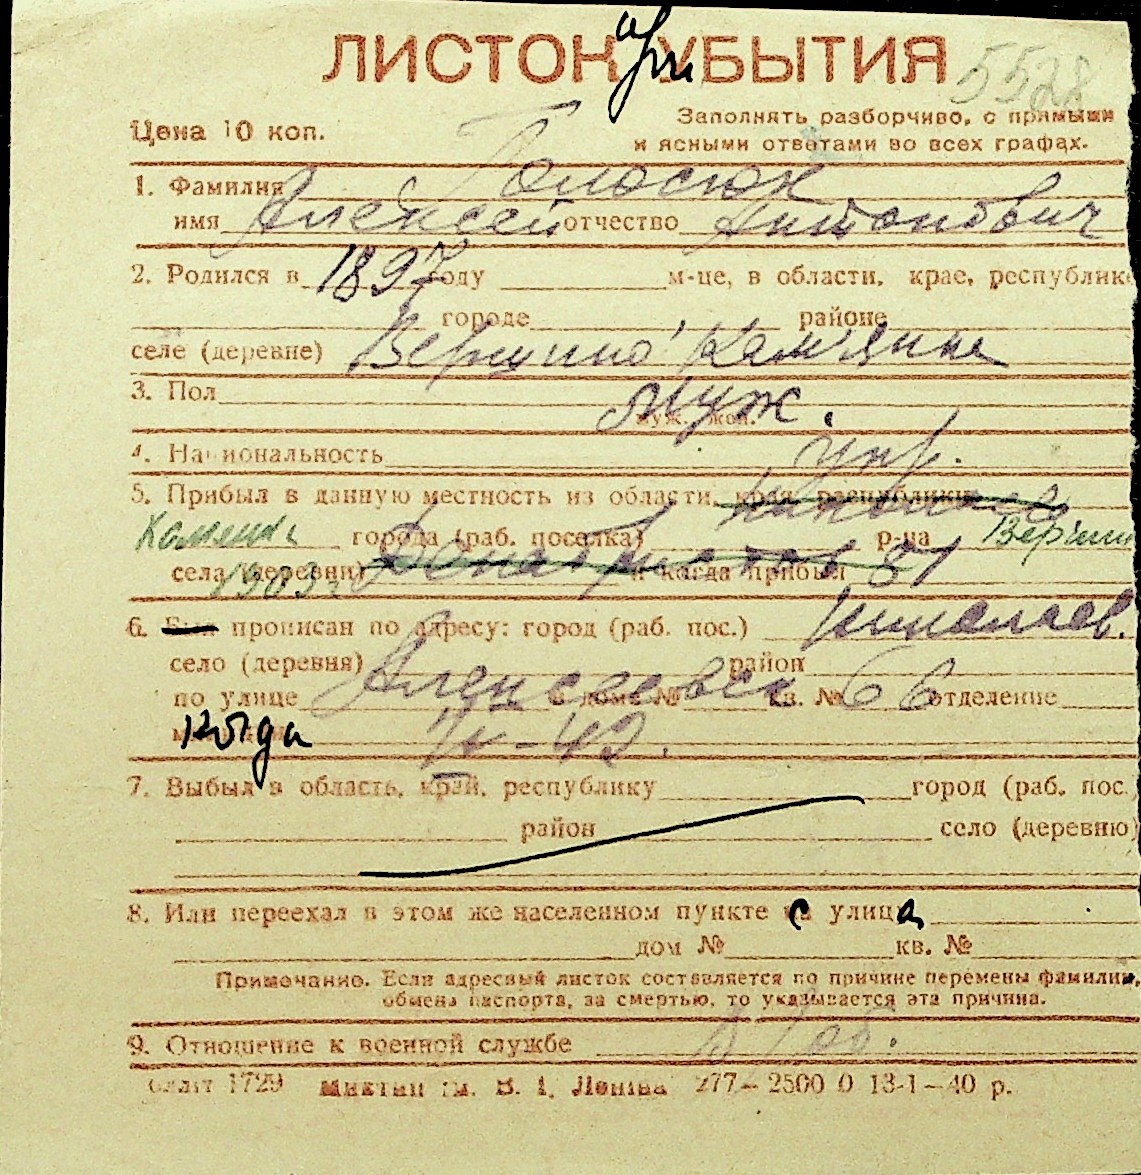 ЛИСТОК УБЫТИЯ
при
5528
Цена 10 коп.
Заполнять разборчиво, с прямыми
и ясными ответами во всех графах.
1. Фамилия Голосюк
имя Алексей отчество Антонович
2. Родился в 1897 году м-це, в области, крае, республике
городе районе
селе (деревне) Вершино Кам'янка
3. Пол Муж.
муж. жен.
4. Национальность укр.
5. Прибыл в данную местность из области, края, республики
города (раб. поселка) р-на
села (деревни) и когда прибыл
1903 г.
6. Был прописан по адресу: город (раб. пос.) Николаев.
село (деревня) район
по улице Алексеевск в доме № кв. № 66 отделение
когда IV-42.
7. Выбыл в область, край, республику город (раб. пос.)
район село (деревню)
8. Или переехал в этом же населенном пункте с улица
дом № кв. №
Примечание. Если адресный листок составляется по причине перемены фамилии,
обмена паспорта, за смертью, то указывается эта причина.
9. Отношение к военной службе
1729 В. І. Леніна 277—2500 0 13-1—40 р.